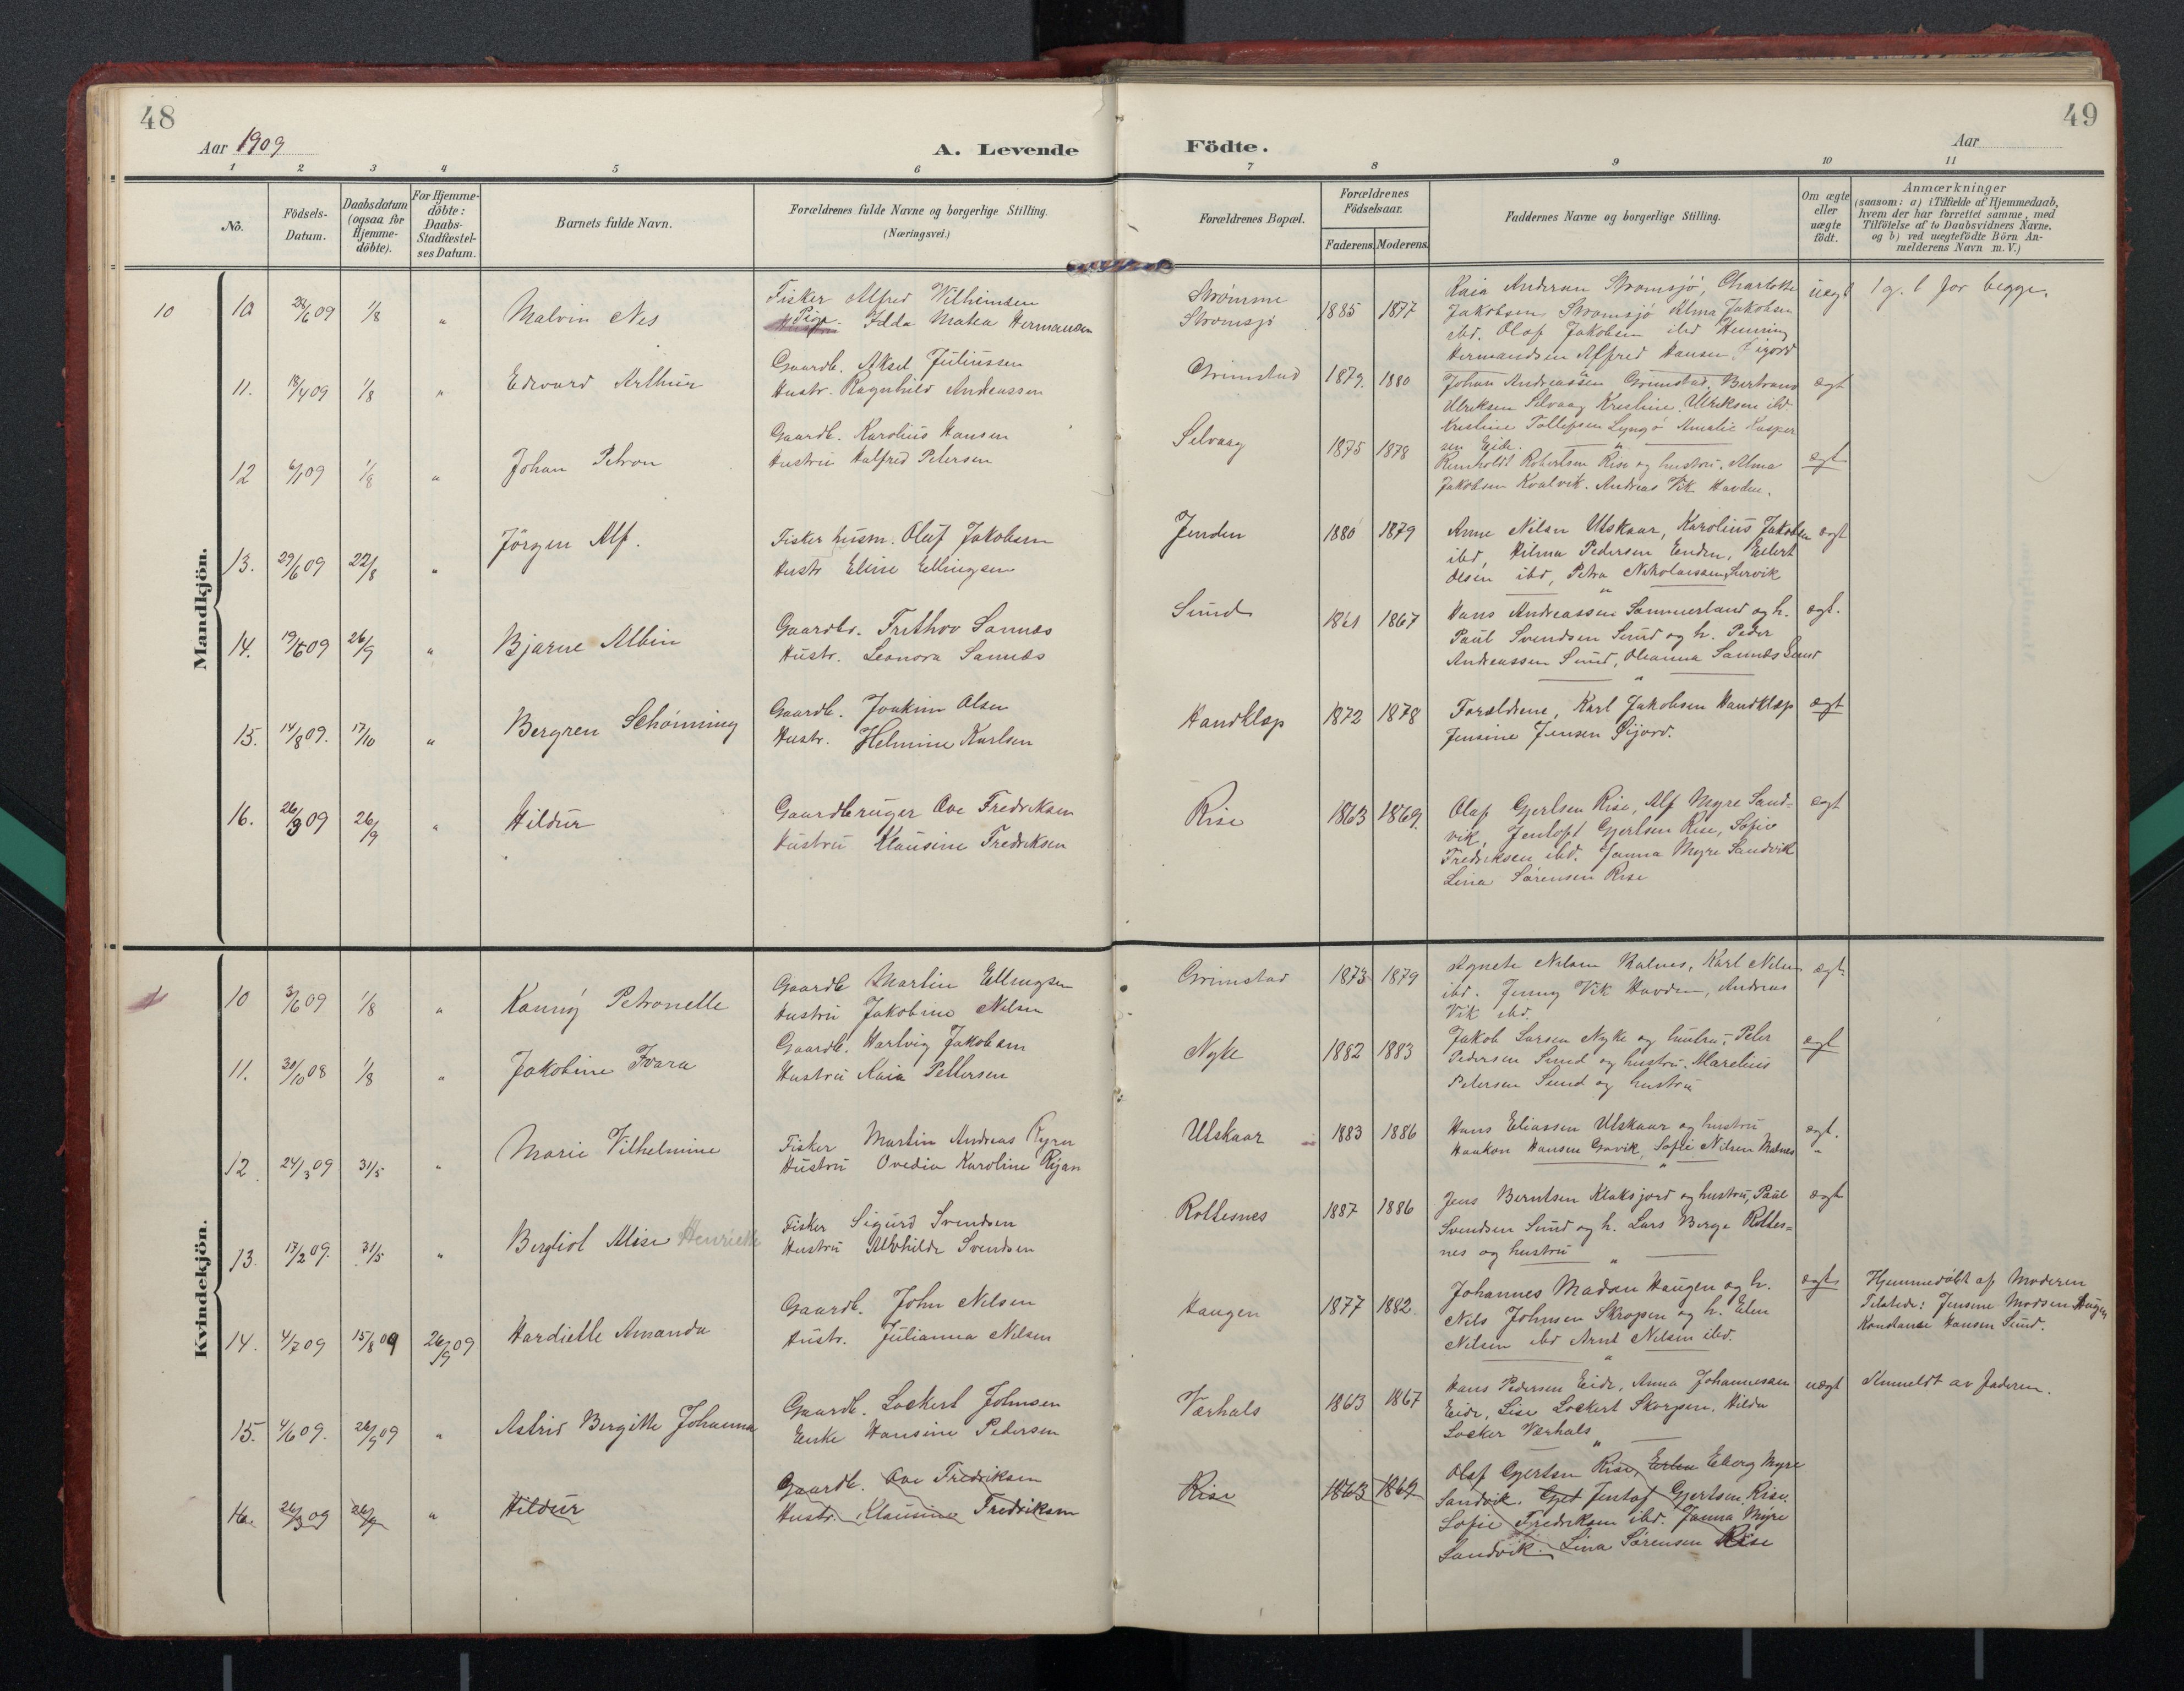 48
49
Aar 1909
A. Levende
Födte.
Aar
1 2 3 4 5 6 7 8 9 10 11
No.
Födsels-
Datum.
Daabsdatum
(ogsaa for
Hjemme-
döbte).
For Hjemme-
döbte:
Daabs-
Stadfæstel-
ses Datum.
Barnets fulde Navn.
Forældrenes fulde Navne og borgerlige Stilling.
(Næringsvei.)
Forældrenes Bopæl.
Forældrenes
Födselsaar.
Faderens. Moderens.
Faddernes Navne og borgerlige Stilling.
Om ægte
eller
uægte
födt.
Anmærkninger
(saasom: a) i Tilfælde af Hjemmedaab,
hvem der har forrettet samme, med
Tilföielse af to Daabsvidners Navne,
og b) ved uægtefödte Börn An-
melderens Navn m. V.)
Mandkjön.
10
10 28/6 09 1/8 " Malvin Nes
Fisker Alfred Vilhelmsen
Pige Hilda Matea Hermansen
Strømme
Stromsjö
1885 1877
Kaia Andersen Stromsjö, Charlotte
Jakobsen Stromsjö Alma Jakobsen
ibd. Olaf Jakobsen ibd Henning
Hermandsen Alfred Hansen
uægt
1 g. l for begge.
11. 18/4 09 1/8 " Edvard Arthur
Gaardb. Aksel Juliussen
Hustr. Ragnhild Andreassen
Grimstad
1879. 1880
Johan Andreassen Grimstad, Bertrand
Ulriksen Selvaag Kristine Ulriksen ibd.
Kristine Tollefsen Lyngö Amalie Kasper
sen Eide.
ægt
12 6/1 09 1/8 " Johan Petron
Gaardb. Karolius Hansen
Hustru Halfred Petersen
Selvaag
1875 1878
Reinholdt Robertsen Rise og hustru. Alma
Jakobsen Kvalvik. Andreas Vik Havden.
ægt
13. 29/6 09 22/8 " Jörgen Alf.
Fisker husm. Oluf Jakobsen
Hustr Eline Ellingsen
Jenden
1880 1879
Anne Nilsen Utskaar, Karolius Jakobsen
ibd, Hilma Pedersen Enden, Eilert
Olsen ibd, Petra Nikolaisen
ægt
14. 19/6 09 26/9 " Bjarne Albin
Gaardbr. Frithov Sannes
Hustr. Leonora Sannes
Sund
1861 1867
Hans Andreassen Sommerland og h.
Paul Svendsen Sund og h. Peder
Andreassen Sund, Oleanna Sannes Sund
ægt.
15. 14/8 09. 17/10 " Bergren Schönning
Gaardb. Joakim Olsen
Hustr. Helmine Karlsen
Handklep
1872 1878
Forældrene, Karl Jakobsen Handklep
Jensine Jensen Öijord.
ægt
16. 26/3 09 26/9 " Hildur
Gaardbruger Ove Fredriksen
Hustru Klausine Fredriksen
Rise
1863 1869.
Olaf Gjertsen Rise, Alf Myre Sand-
vik, Jentoft Gjertsen Rise, Sofie
Fredriksen ibd. Janna Myre Sandvik
Lina Sörensen Rise
ægt
Kvindekjön.
10 3/6 09 1/8 " Kanny Petronelle
Gaardb Martin Ellingsen
Hustru Jakobine Nilsen
Grimstad
1873 1879
Agnete Nilsen Malnes, Karl Nilsen
ibd. Jenny Vik Havden, Andreas
Vik ibd.
ægt.
11. 30/10 08 1/8 " Jakobine Ivara
Gaardb. Hartvig Jakobsen
Hustru Kaia Pettersen
Nyke
1882 1883
Jakob Larsen Nyke og hustru, Peter
Pedersen Sund og hustru. Marelius
Petersen Sund og hustru
ægt
12. 24/3 09 31/5 " Marie Vilhelmine
Fisker Martin Andreas
Hustru Ovedia Karoline
Utskaar
1883 1886
Hans Eliassen Utskaar og hustru
Haakon Hansen Gavik, Sofie Nilsen Malnes
ægt.
13. 17/2 09. 31/5 " Bergliot Alise Henriette
Fisker Sigurd Svendsen
Hustru Alvhilde Svendsen
Rottesnes
1887 1886
Jens Berntsen Klaksjord og hustru, Paul
Svendsen Sund og h. Lars Berge Rottes-
nes og hustru
ægt
14. 4/7 09 15/8 09 26/9 09 Hardielle Amanda
Gaardb. John Nilsen
Hustr. Julianna Nilsen
Haugen
1877 1882
Johannes Madsen Haugen og h.
Nils Johnsen Skrogsen og h. Elen
Nilsen ibd Arnt Nilsen ibd.
ægte
Hjemmedöbt af Moderen
Tilstede: Jensine Madsen Haugen
Konstanse Hansen Sund.
15. 4/6 09. 26/9 09 " Astrid Bergitte Johanna
Gaardb. Lockert Johnsen
Enke Hansine Pedersen
Værhals
1863 1867
Hans Pedersen Eide, Anna Johannesen
Eide, Lise Lockert Skorpen. Hilda
Locker Værhals
uægt
Anmeldt av faderen.
16. 26/3 09 26/9 " Hildur
Gaardb. Ove Fredriksen
Hustr. Klausine Fredriksen
Rise
1863 1869
Olaf Gjertsen Rise, Eberg Myre
Sandvik. Gjet Jentof Gjertsen Rise.
Sofie Fredriksen ibd. Janna Myre
Sandvik. Lina Sörensen Rise